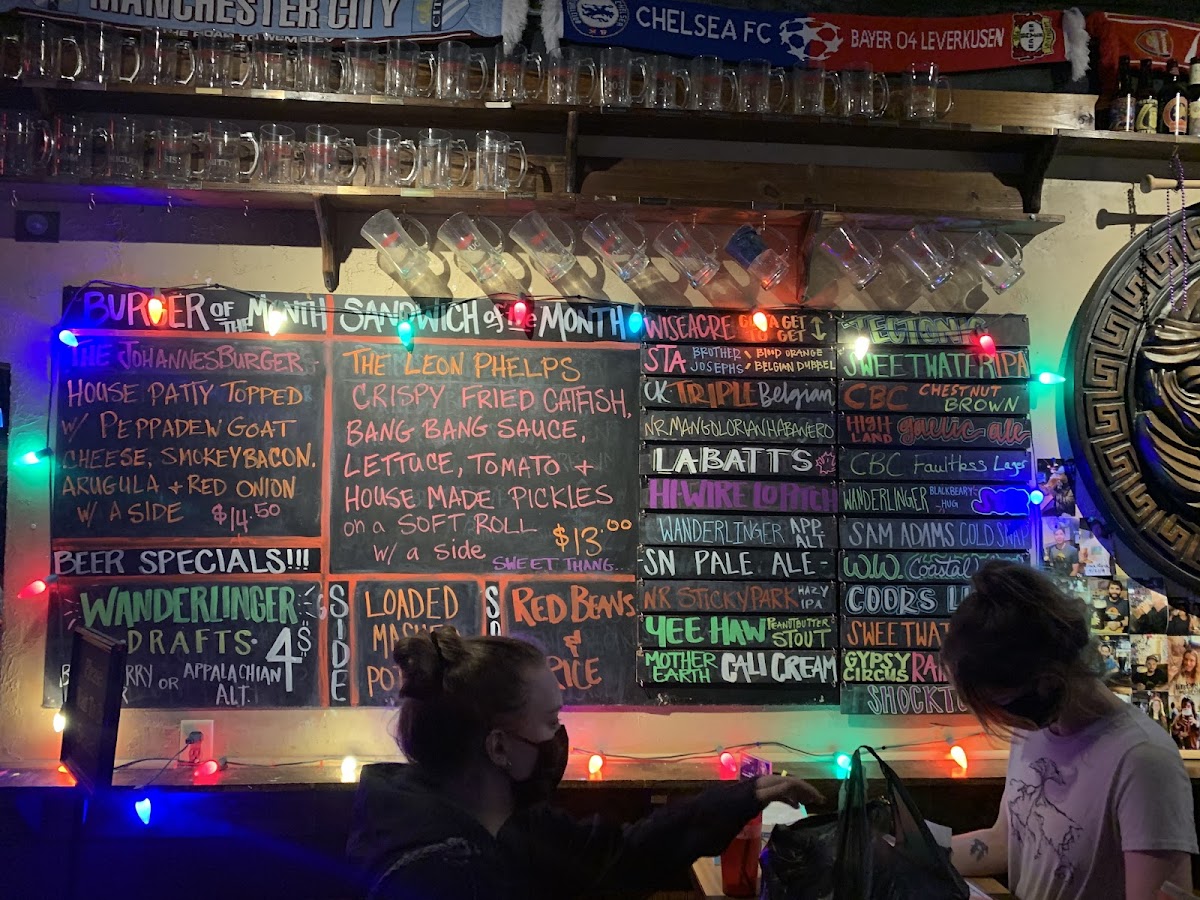 MANCHESTER CITY
THE ROAD TO WEMBLEY
CHELSEA FC
BAYER 04 LEVERKUSEN
BURGER OF THE MONTH
THE JOHANNESBURGER
HOUSE PATTY TOPPED
W/ PEPPADEW GOAT
CHEESE, SMOKEY BACON.
ARUGULA + RED ONION
W/ A SIDE $14.50
SANDWICH of the MONTH
THE LEON PHELPS
CRISPY FRIED CATFISH,
BANG BANG SAUCE,
LETTUCE, TOMATO +
HOUSE MADE PICKLES
on a SOFT ROLL
w/ a side $13.00
SWEET THANG..
BEER SPECIALS!!!
WANDERLINGER
DRAFTS 4$
OR APPALACHIAN
ALT.
SIDE
LOADED
RED BEANS
&
WISEACRE GOTTA GET UP TO GET ↓
STA BROTHER JOSEPHS BLOOD ORANGE BELGIAN DUBBEL
CK TRIPLE Belgian
NR MANGOLORIAN HABANERO
LABATTS
HI-WIRE LO PITCH
WANDERLINGER APP. ALT
SN PALE ALE-
NR STICKY PARK HAZY IPA
YEE HAW PEANUTBUTTER STOUT
MOTHER EARTH CALI CREAM
TECTONIC
SWEETWATER IPA
CBC CHESTNUT BROWN
HIGH LAND gaelic-ale
CBC Faultless Lager
WANDERLINGER BLACKBEARY HUG
SAM ADAMS COLD SNAP
W.W. Coastal
COORS
GYPSY CIRCUS